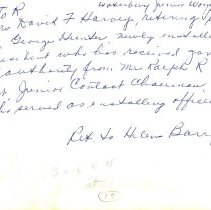 to R   Waterbury Junior Wom
Mrs David F Harvey, retiring p
George Hunter newly installe
resident who has received gav
authority from Mrs Ralph R
Junior Contact Chairman,
who served as installing office
Ret to Helen Barr
19